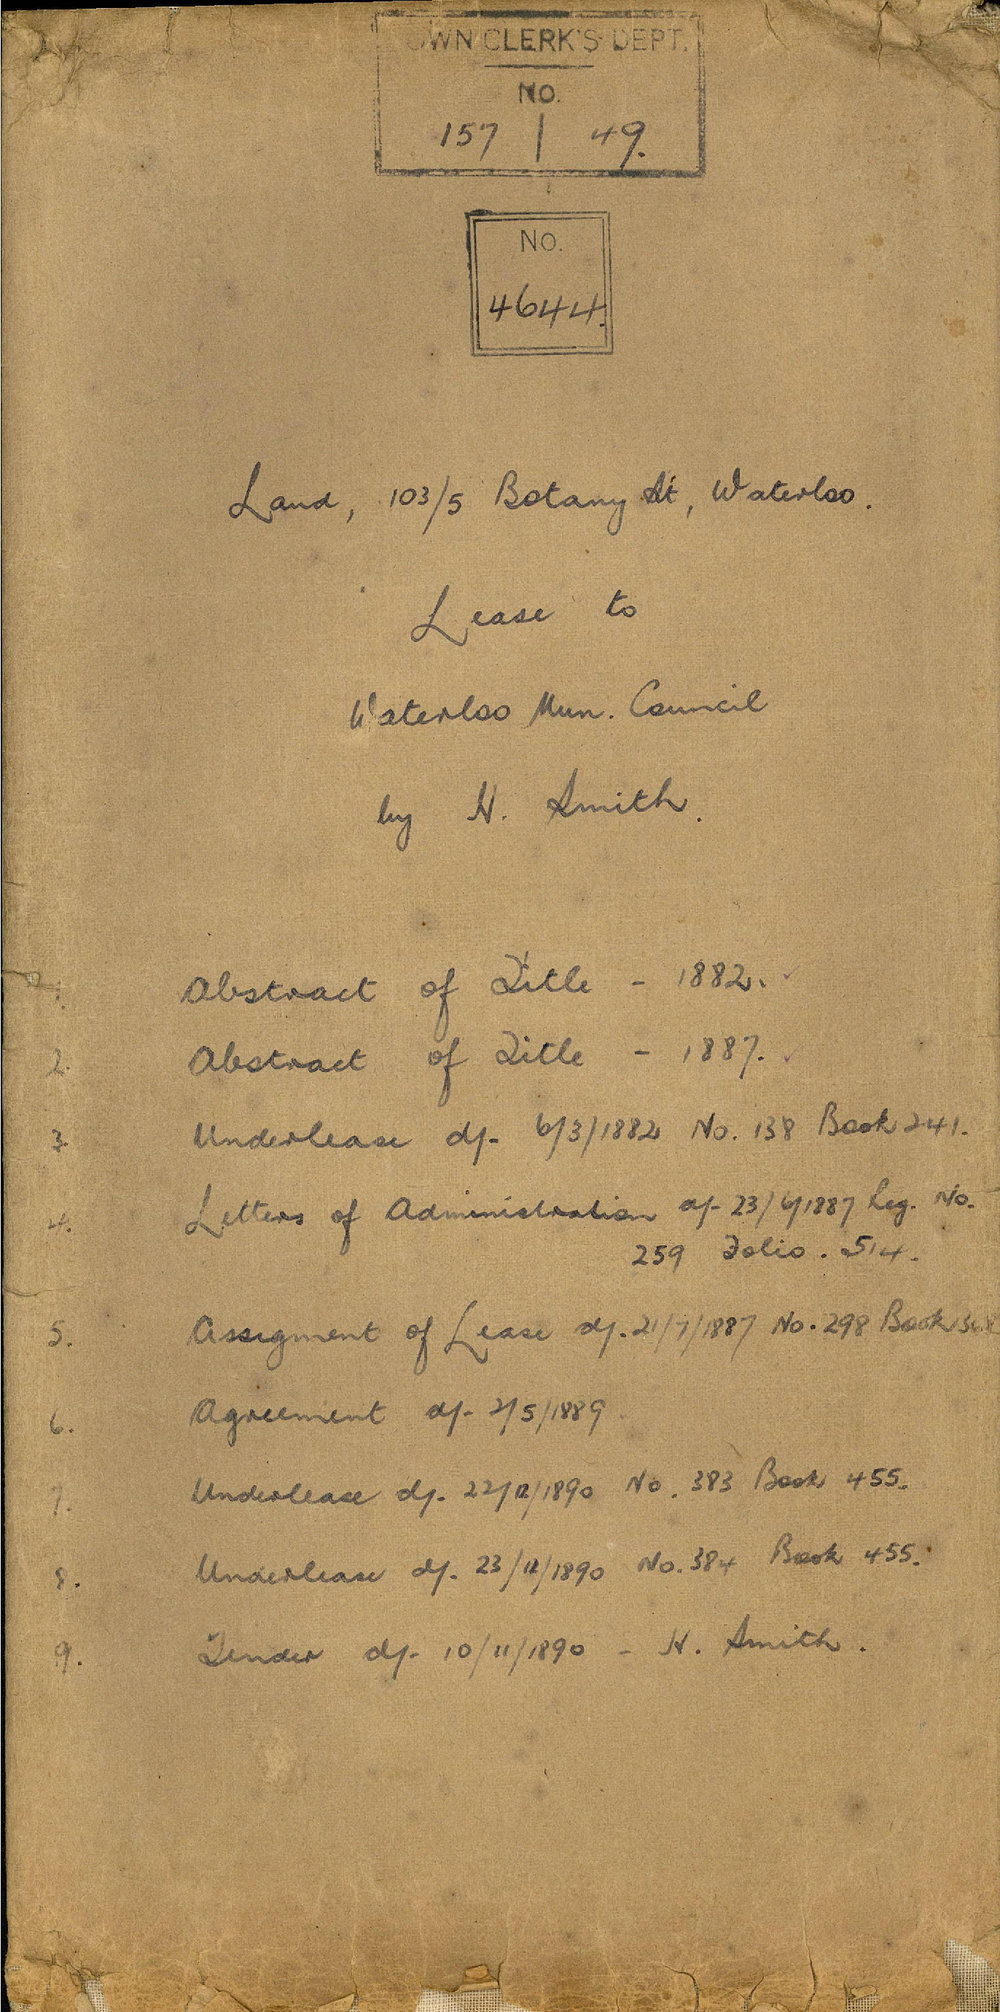 OWN CLERK'S DEPT.
NO.
157 | 49.
NO.
4644.
Land, 103/5 Botany St, Waterloo.
Lease to
Waterloo Mun. Council
by H. Smith.
1. Abstract of Title - 1882.
2. Abstract of Title - 1887.
3. Underlease d/- 6/3/1882 No. 138 Book 241.
4. Letters of Administration d/- 23/6/1887 Reg. No.
259 Folio. 514.
5. Assigment of Lease d/- 21/7/1887 No. 298 Book
6. Agreement d/- 2/5/1889
7. Underlease d/- 22/12/1890 No. 383 Book 455.
8. Underlease d/- 23/12/1890 No. 384 Book 455.
9. Tender d/- 10/11/1890 - H. Smith.